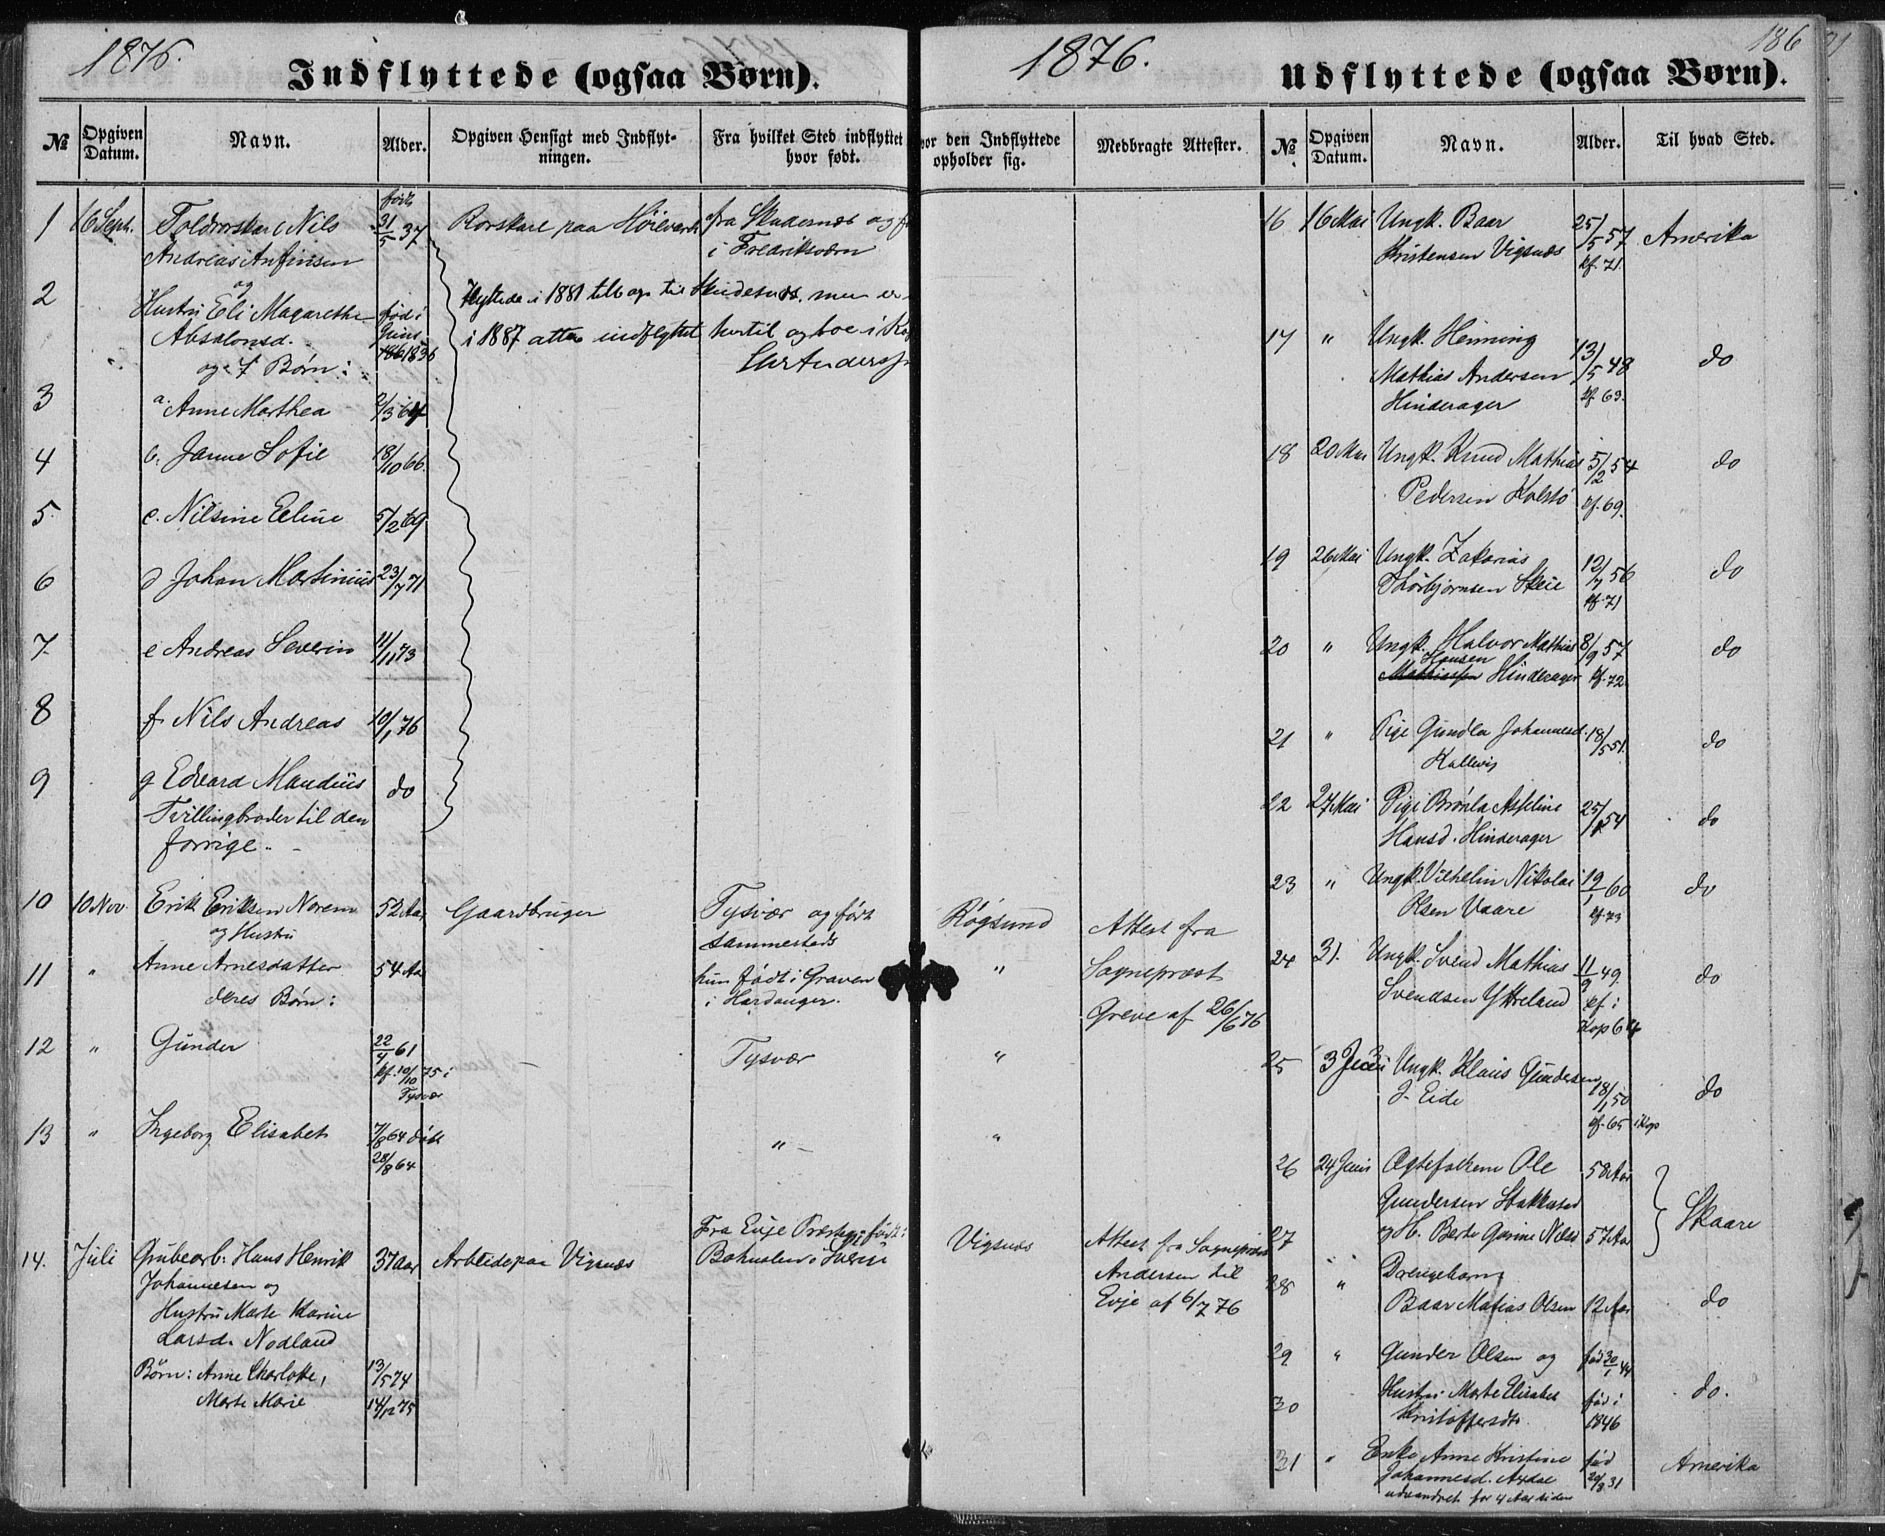 1876.
Indflyttede (ogsaa Børn).
№ Opgiven Datum. Navn. Alder. Opgiven Hensigt med Indflytningen. Fra hvilket Sted indflyttet hvor født.
1 16 Sept. Toldrorskarl Nils født 31/5 37 Rorskarl paa Høievarde fra Skudesnæs og f
Andreas Anfinsen i Fredriksværn
og
2 Hustru Eli Magarethe født i Flyttede i 1881 tilbage til Skudesnæs, men er
Absalonsd. Juni 1836 i 1887 atter indflyttet hertil og boe i
og 7 Børn:
3 a. Anne Marthea 2/3 64
4 b. Janne Sofie 18/10 66.
5 c. Nilsine Eline 5/2 69
6 d Johan Martinius 23/7 71
7 e Andreas Severin 11/11 73
8 f. Nils Andreas 10/1 76
9 g Edvard Mandius do
Tvillingbroder til den
forrige.
10 10 Nov. Erik Eriksen Norem 52 Aar Gaardbruger Tysvær og født
og Hustru sammesteds
11 " Anne Arnesdatter 54 Aar hun født i Graven
deres Børn: i Hardanger.
12 " Gunder 22/4 61 Tysvær
kf. 10/10 75 i
Tysvær
13 " Ingeborg Elisabet 7/8 64 døbt "
28/8 64
14. Juli Grubearb: Hans Henrik 37 Aar Arbeide paa Vigsnæs Fra Evje Præsteg. født i
Johannesen og Bohuslen i Sverige
Hustru Marte Karine
Larsd. Nodland
Børn: Anne Charlotte, 13/5 74
Marte Marie 14/12 75
1876.
186
Udflyttede (ogsaa Børn).
vor den Indflyttede opholder sig. Medbragte Attester. № Opgiven Datum. Navn. Alder. Til hvad Sted.
Røgsund Attest fra
" Sogneprest
Greve af 26/6 76
"
"
Vigsnæs Attest fra Sognepræst
Andersen til
Evje af 6/7 76
16 16 Mai Ungk. Baar 25/5 57 Amerika
Kristensen Vigsnæs kf. 71.
17 " Ungk. Henning
Mathias Andersen 13/5 48 do
Hinderager kf 63.
18 20 Mai Ungk. Knud Mathias 5/2 54 do
Pedersen Kolstø kf. 69.
19 26 Mai Ungk. Zakarias 12/7 56 do
Thorbjørnsen Skeie kf. 71
20 " Ungk. Halvor Mathias 8/9 57 do
Hansen
Mathiassen Hinderager kf. 72
21 " Pige Gundla Johannesd. 18/5 51. do
Kallevig
22 27 Mai Pige Brønla Asseline 25/ 54 do
Hansd. Hinderager
23 " Ungk. Vilhelm Nikolai 19/1 60 do
Olsen Vaare
24 31. Ungk. Svend Mathias 11/9 49. do
Svendsen Ytreland kf. i
Kop 64
25 3 Juni Ungk. Klaus Gundersen
J. Eide 18/1 50 do
kf. 65 i Kop
26 24 Juni Ægtefolkene Ole 58 Aar
Gundersen Stakkestad Skaare
27 og H. Berte Gurine Nilsd 57 Aar
28 " Drengebarn
Baar Matias Olsen 12 Aar do
29 " Gunder Olsen og
30 Hustru Marte Elisabet født i do.
Kristoffersdt. 1846
31 " Enke Anne Kristine Amerika
Johannesd.
udvandret for 4 Aar siden